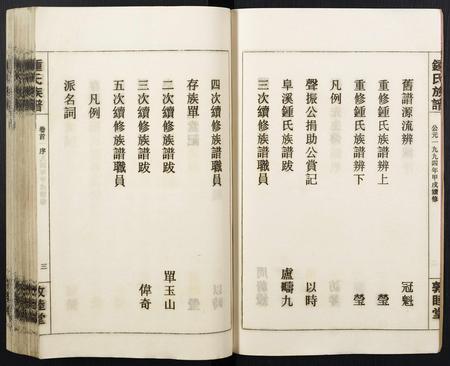 鍾氏族譜
公元一九九四年甲戌續修
敦睦堂
舊譜源流辨 冠魁
重修鍾氏族譜辨上 瑩
重修鍾氏族譜辨下 瑩
凡例
聲振公捐助公賞記 以時
阜溪鍾氏族譜跋 盧疇九
三次續修族譜職員
四次續修族譜職員
存族單
二次續修族譜跋 單玉山
三次續修族譜跋 偉奇
五次續修族譜職員
凡例
派名詞
鍾氏族譜
卷首 序
三
敦睦堂